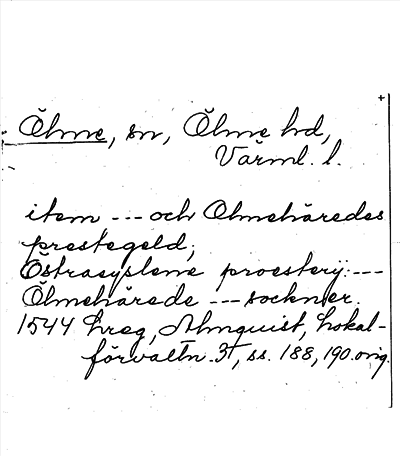 Ölme, sn, Ölme hd,
Värml. l.
item --- och Olmehäredes
prestegeld;
Östrasyslene proestery: ---
Ölmehärede --- sockner.
1544 hreg, Almquist, Lokal-
förvaltn. 3, ss. 188, 190. orig.